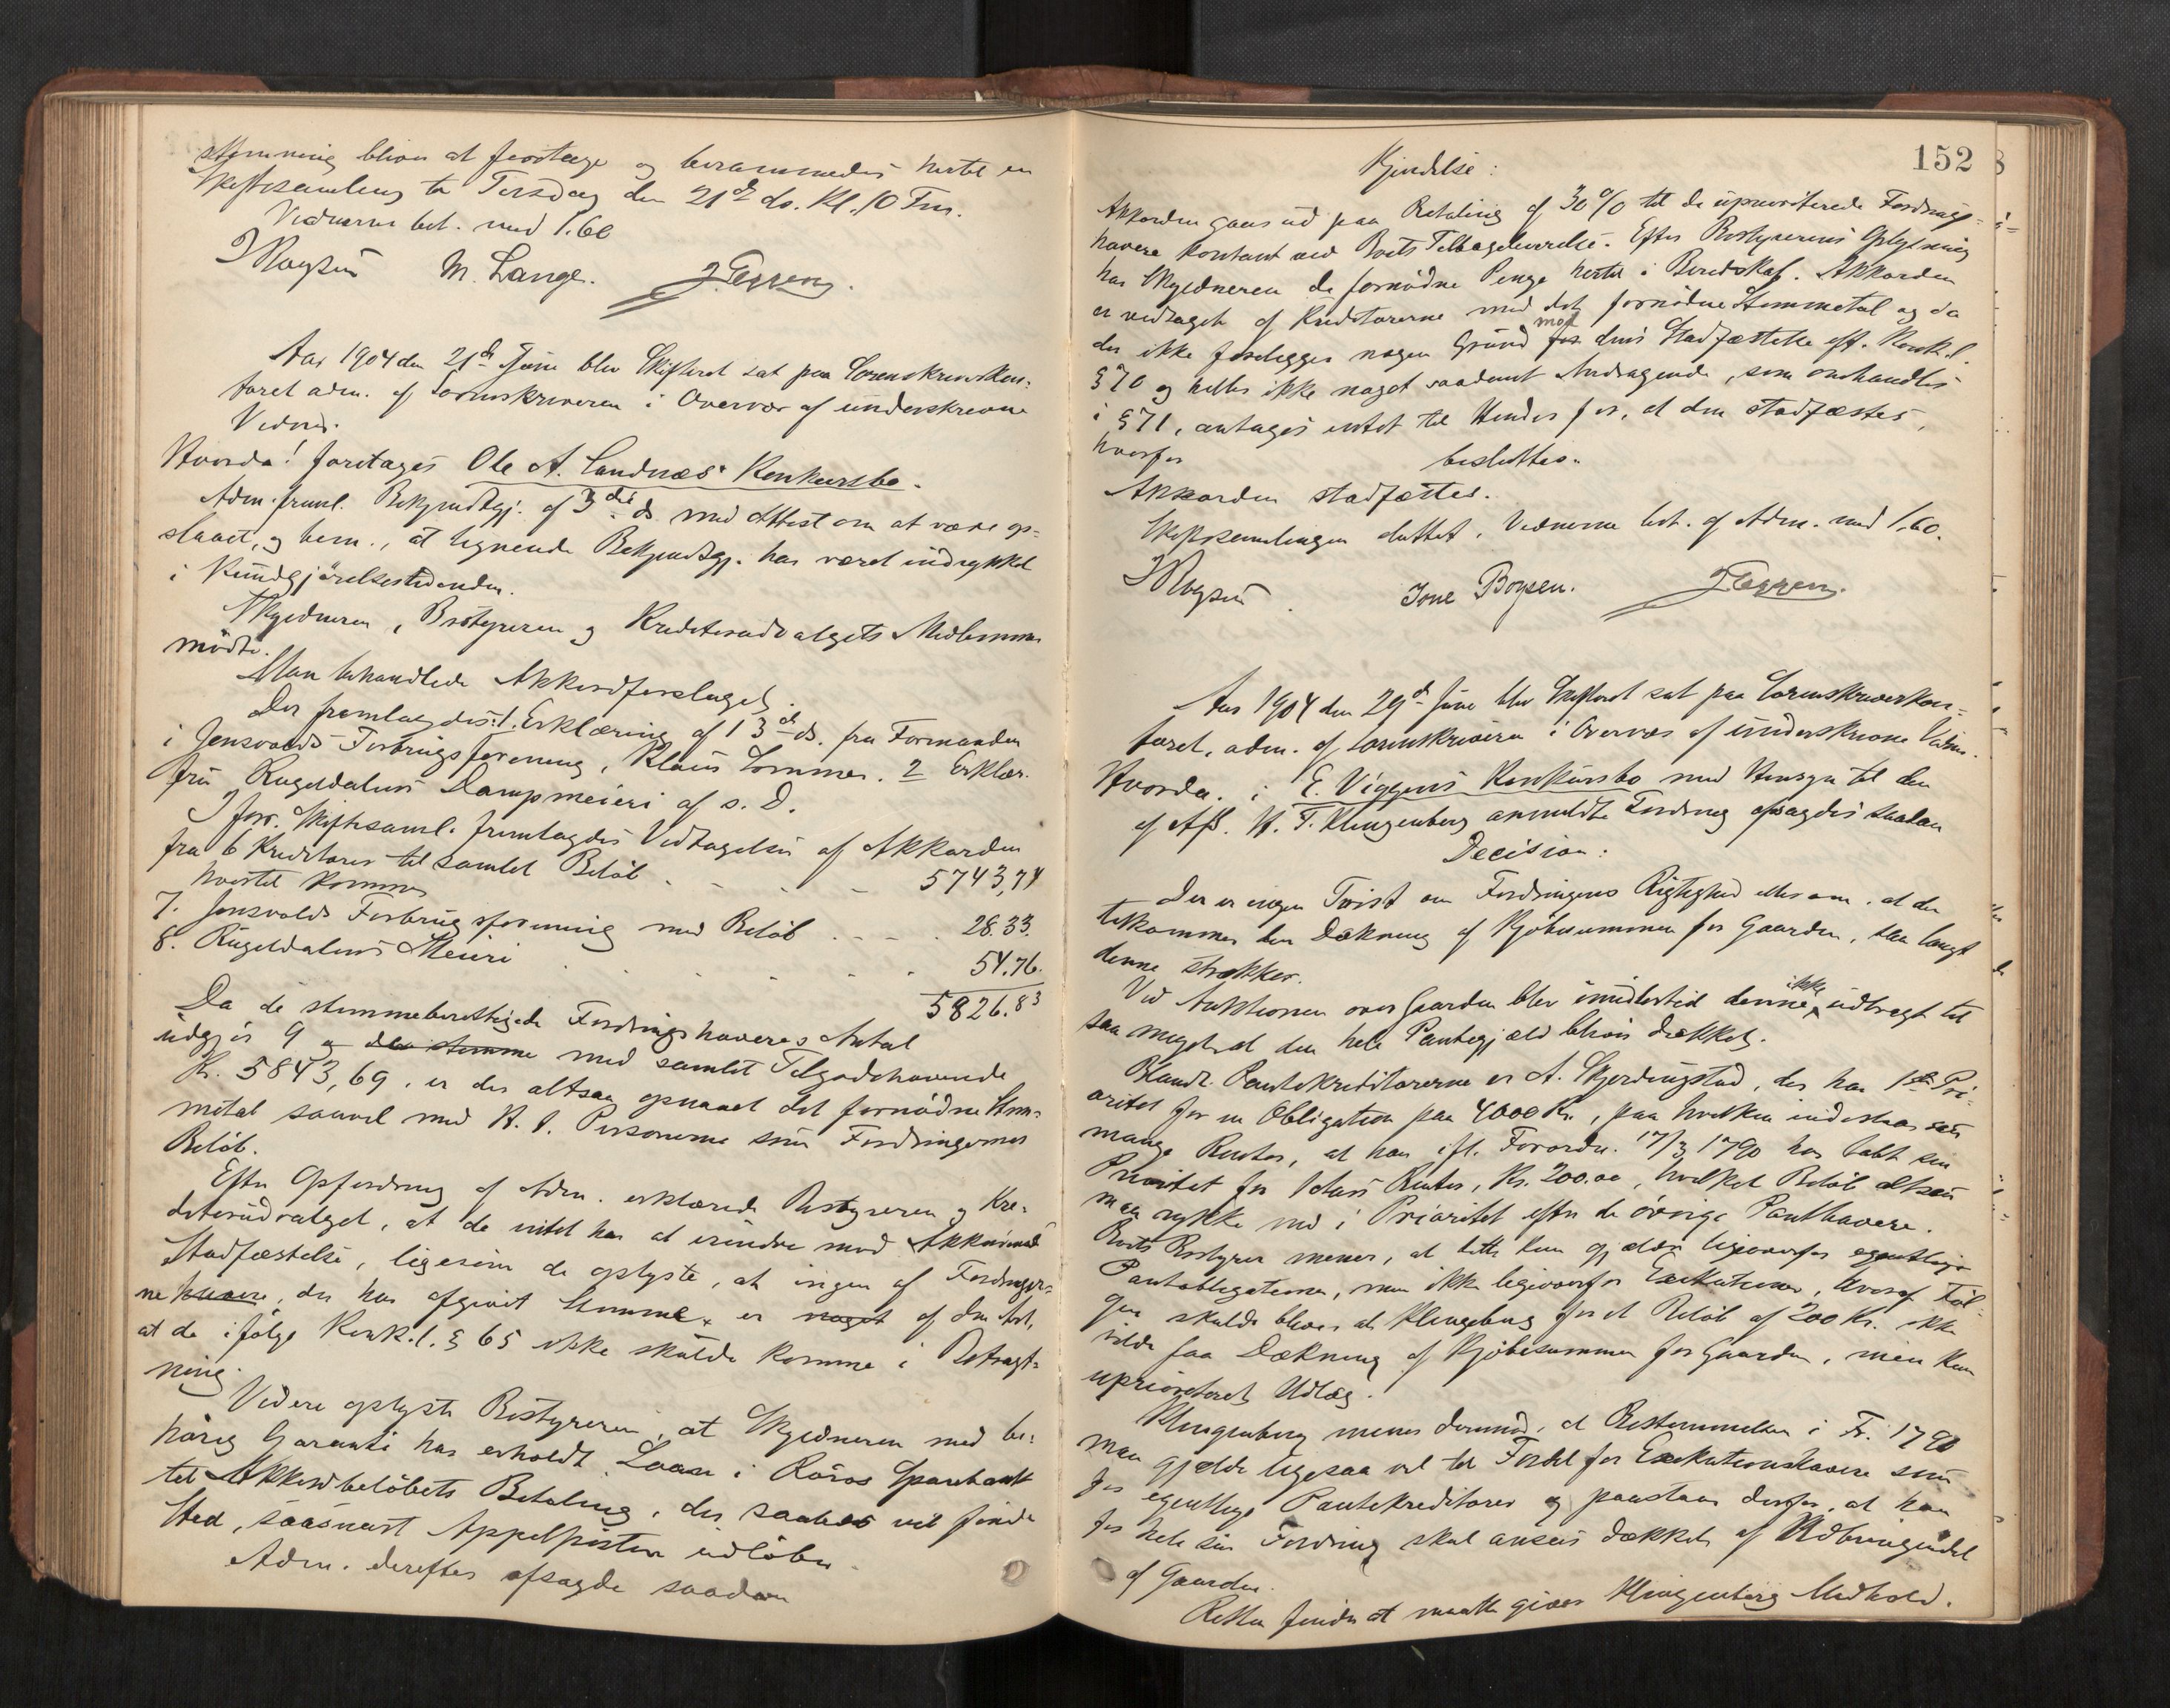 stemning bliver at foretage og berammedes hertil en
Skiftesamling til Tirsdag den 21de ds. Kl. 10 Fm.
Vidnerne bet. med 1.60
M. Lange.
Aar 1904 den 21de Juni blev Skifteret sat paa Sorenskriverkon-
toret adm. af Sorenskriveren i Overvær af underskrevne
Vidner.
Hvorda! foretages Ole A. Sandnæs' Konkursbo.
Adm. freml. Bekjendtgj. af 3die ds. med Attest om at være op-
slaaet, og bem., at lignende Bekjendtgj. har været indrykket
i Kundgjörelsestidenden.
Skyldneren, Bostyreren og Kreditorudvalgets Medlemmer
mödte.
Man behandlede Akkordforslaget.
Der fremlagdes: 1. Erklæring af 13de ds. fra Formanden
i Jensvolds Forbrugsforening, Klaus Sommer. 2 Erklær.
fra Rugeldalens Dampmeieri af s. D.
I forr. Skiftesaml. fremlagdes Vedtagelse af Akkorden
fra 6 Kreditorer til samlet Belöb 5743,74
hvortil kommer
7. Jensvolds Forbrugsforening med Belöb 28.33.
8. Rugeldalens Meieri 54.76.
5826.83
Da de stemmeberettigede Fordringshaveres Antal
udgjör 9 og der stemme med samlet Tilgodehavende
Kr. 5843,69, er der altsaa opnaaet det fornödne Stem-
metal saavel med H. t. Personerne som Fordringernes
Belöb.
Efter Opfordring af Adm. erklærede Bostyreren og Kre-
ditorudvalget, at de intet har at erindre mod Akkordens
Stadfæstelse, ligesom de oplyste, at ingen af Fordringer-
ne havere, der har afgivet Stemme, er noget af den Art,
at de ifölge Konk.l. § 65 ikke skulde komme i Betragt-
ning.
Videre oplyste Bostyreren, at Skyldneren med be-
hörig Garanti har erholdt Laan i Röros Sparebank
til Akkordbelöbets Betaling, der saaledes vil finde
Sted, saasnart Appelfristen udlöber.
Adm. derefter afsagde saadan
152
Kjendelse:
Akkorden gaar ud paa Betaling af 30 % til de uprioriterede Fordrings-
havere kontant ved Boets Tilbageleverelse. Efter Bostyrerens Oplysning
har Skyldneren de fornödne Penge hertil i Beredskab. Akkorden
er vedtaget af Kreditorerne med det fornödne Stemmetal og da
der ikke foreligger nogen Grund for mod dens Stadfæstelse eft. Konk.l.
§ 70 og heller ikke noget saadant Andragende, som omhandles
i § 71, antages intet til Hinder for, at den stadfæstes,
hvorfor
besluttes:
Akkorden stadfæstes.
Skiftesamlingen sluttet. Vidnerne bet. af Adm. med 1.60.
Tone Boysen.
Aar 1904 den 29de Juni blev Skifteret sat paa Sorenskriverkon-
toret, adm. af Sorenskriveren i Overvær af underskrevne Vidner.
Hvorda: i E. Viggens Konkursbo med Hensyn til den
af H. F. Klingenberg anmeldte Fordring afsagdes saadan
Decision:
Der er ingen Tvist om Fordringens Rigtighed eller om, at der
tilkommer den Dækning af Kjöbesummen for Gaarden, saa langt
denne strækker.
Ved Auktionen over Gaarden blev imidlertid denne ikke udbragt til
saa meget, at den hele Pantegjæld blev dækket.
Blandt Pantekreditorerne er A. Skjerdingstad, der har 1ste Pri-
oritet for en Obligation paa 4000 Kr., paa hvilken indestaar saa
mange Renter, at han ifl. Forordn. 17/3 1790 har tabt sin
Prioritet for 1 Aars Renter, Kr. 200.00, hvilket Belöb altsaa
maa rykke ned i Prioritet efter de övrige Panthavere.
Boets Bostyrer mener, at dette kun gjælder ligeoverfor egentlige
Pantobligationer, men ikke ligeoverfor Exekutioner, hvoraf Föl-
gen skulde blive, at Klingenberg for et Belöb af 200 Kr. ikke
vilde faa Dækning af Kjöbesummen for Gaarden, men kun
uprioriteret Udlæg.
Klingenberg mener derimod, at Bestemmelsen i Fr. 1790
maa gjælde ligesaa vel til Fordel for Exekutionshavere som
for egentlige Pantekreditorer og paastaar derfor, at han
for hele sin Fordring skal ansees dækket af Udbringendet
af Gaarden.
Retten finder at maatte give Klingenberg Medhold.